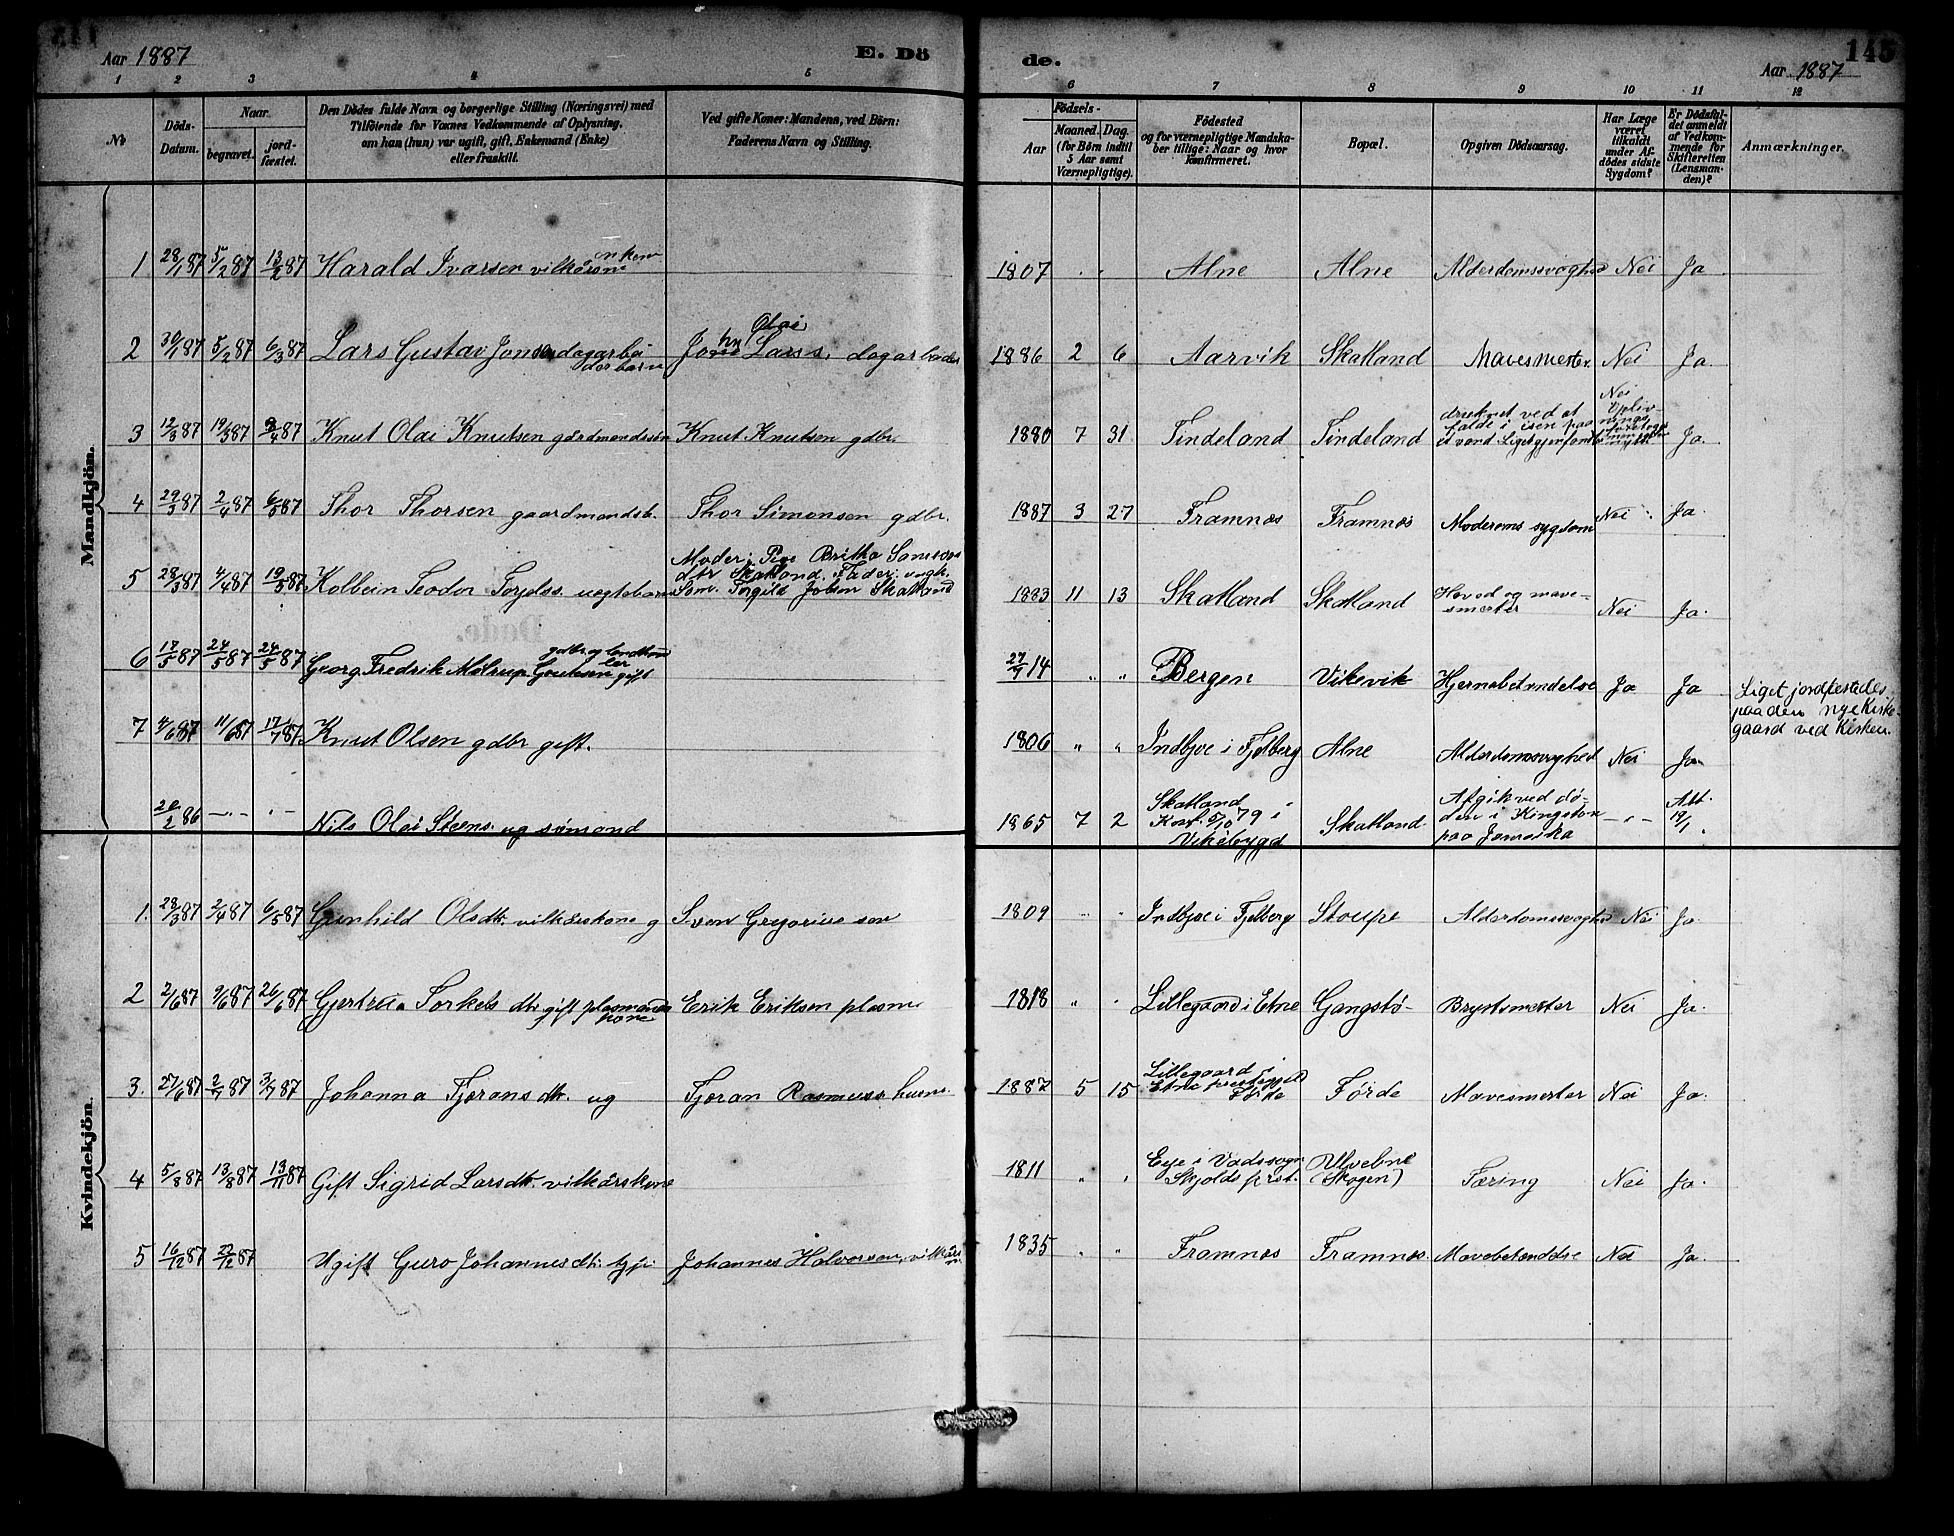 Aar 1887
E. Dö
de.
145
Aar 1887
1 2 3 4 5 6 7 8 9 10 11 12
No
Döds-Datum.
Naar
begravet.
jord-fæstet.
Den Dödes fulde Navn og borgerlige Stilling (Næringsvei) med
Tilföiende for Voxnes Vedkommende af Oplysning,
om han (hun) var ugift, gift, Enkemand (Enke)
eller fraskilt.
Ved gifte Koner: Mandens, ved Börn:
Faderens Navn og Stilling.
Födsels-
Aar
Maaned. Dag.
(for Börn indtil
5 Aar samt
Værnepligtige).
Födested
og for værnepligtige Mandska-
ber tillige: Naar og hvor
Konfirmeret.
Bopæl.
Opgiven Dödsaarsag.
Har Læge
været
tilkaldt
under Af-
dödes sidste
Sygdom?
Er Dödsfal-
det anmeldt
af Vedkom-
mende for
Skifteretten
(Lensman-
den)?
Anmærkninger.
Mandkjön.
1 28/1 87 5/2 87 13/2 87 Harald Ivarsen 1807 Alne Alne Alderdomssvaghed Nei Ja
2 30/1 87 5/2 87 6/3 87 Lars Gustav Jonsen dagarbei
derbarn John Olai Larss. dagarbeider 1886 2 6 Aarvik Skatland Mavesmerter Nei Ja.
3 12/3 87 19/3 87 87 Knut Olai Knutsen gårdmandssön Knut Knutsen gdbr. 1880 7 31 Tindeland Tindeland druknet ved at
falde i isen paa
et vand Nei Ja
4 29/3 87 2/4 87 6/5 87 Thor Thorsen gaardmandsb. Thor Simonsen gdbr. 1887 3 27 Framnæs Framnæs Moderens sygdom Nei Ja.
5 28/3 87 4/4 87 19/5 87 Kolbein Teodor uægtebarn Moder: Pige Britha
dtr Skatland. Fader: ungk.
Torgild Jobsen Skatland 1883 11 13 Skatland Skatland Hoved og mave-
smerter Nei Ja.
6 17/5 87 24/5 87 24/5 87 Georg Fredrik gdbr. og landhand
ler gift 27/9 14 " " Bergen Vikevik Hjernebetændelse Ja Ja Liget jordfæstedes
paa den nye Kirke-
gaard ved Kirken.
7 4/6 87 11/6 87 17/7 87 Knut Olsen gdbr gift. 1806 " " Indbjoe i Fjelberg Alne Alderdomssvaghed Nei Ja
2/86 Nils Olai Steens. ug sømand 1865 7 2 Skatland
Konf. 5/10 79 i
Vikebygd Skatland Afgik ved dö-
den i Kingston
paa Jamaika Att.
19/1
Kvindekjön.
1. 28/3 87 2/4 87 6/5 87 Gunhild Olsdtr. vilkårskone g Sven Gregoriussen 1809 Indbjoe i Fjelberg Stoupe Alderdomssvaghed Nei Ja
2 2/6 87 9/6 87 26/6 87 Gjertrua Torkelsdtr. gift plasmands
kone Erik Eriksen plasm 1818 " " Lillegaard i Etne Gangstö- Brystsmerter Nei Ja.
3. 27/6 87 2/7 87 3/7 87 Johanna Tjeransdtr. ug Tjeran Rasmuss husm. 1887 5 15 Lillegaard i
Etne prestegjeld
Förde Förde Mavesmerter Nei Ja.
4 5/8 87 13/8 87 13/11 87 Gift Sigrid Larsdtr. vilkårskone 1811 " " Eye i Vadssogn
Skjolds prst. Ulvebne
(Skogen) Tæring Nei Ja.
5 16/12 87 22/12 87 Ugift Guro Johannesdtr. Johannes Halvorsen, 1835 " " Framnæs Framnæs. Mavebetændelse Nei Ja.